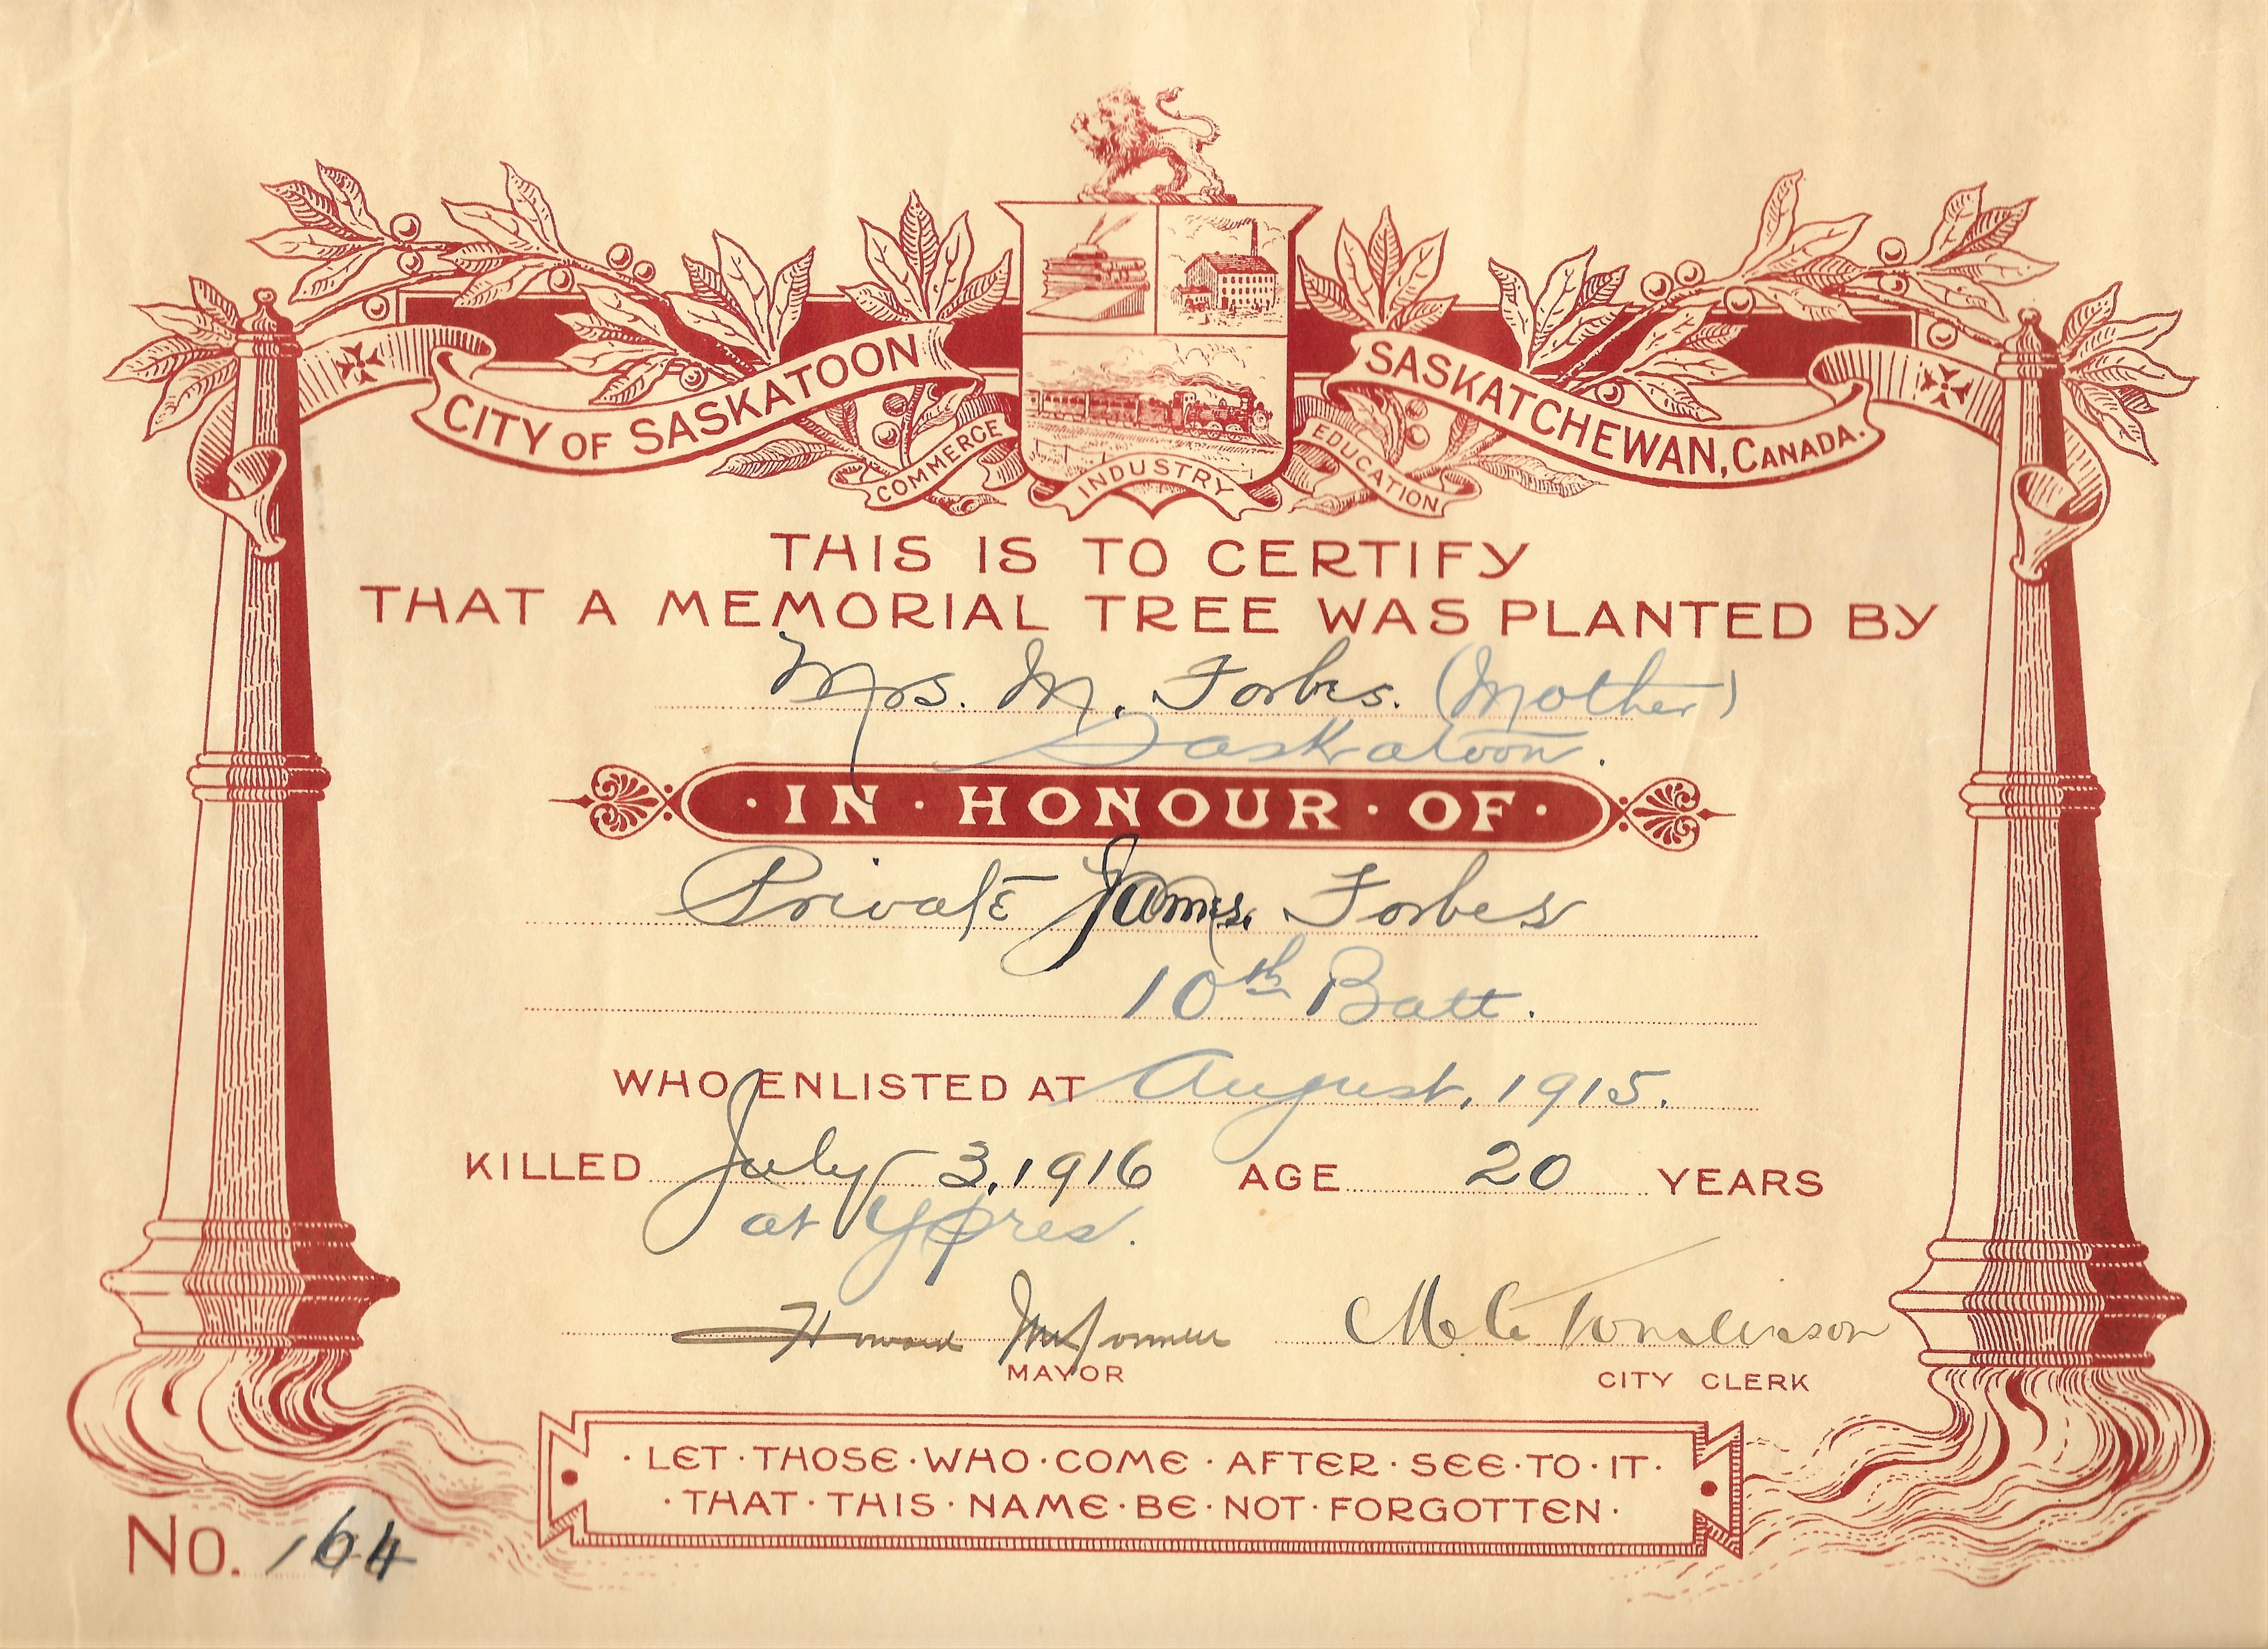 CITY OF SASKATOON
SASKATCHEWAN, CANADA.
COMMERCE
INDUSTRY
EDUCATION
THIS IS TO CERTIFY
THAT A MEMORIAL TREE WAS PLANTED BY
Mrs. M. Forbes. (Mother)
Saskatoon.
· IN · HONOUR · OF ·
Private James Forbes
10th Batt.
WHO ENLISTED AT August, 1915.
KILLED July 3, 1916 AGE 20 YEARS
at Ypres.
Howard McConnell M. C. Tomlinson
MAYOR CITY CLERK
· LET · THOSE · WHO · COME · AFTER · SEE · TO · IT ·
· THAT · THIS · NAME · BE · NOT · FORGOTTEN ·
No. 164